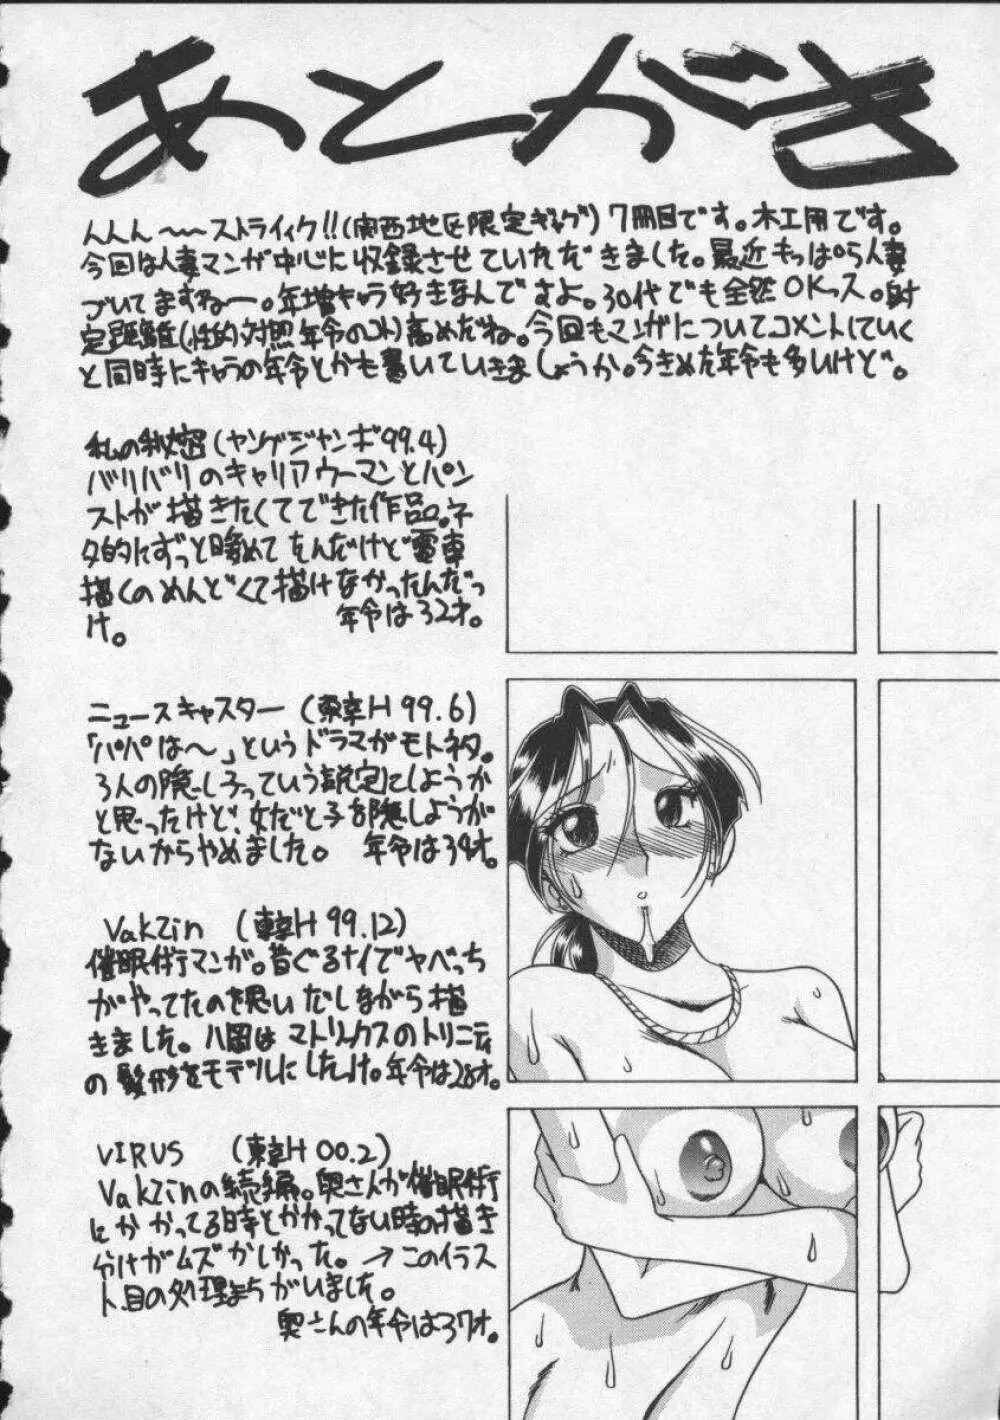 あとがき
んんん〜〜ストライィク!!(関西地区限定ギャグ)7冊目です。木工用です。
今回は人妻マンガ中心に収録させていただきました。最近もっぱら人妻
づいてますねー。年増キャラ好きなんですよ。30代でも全然OKっス。射
定距離(性的対照年令のコト)高めだね。今回もマンガについてコメントしていく
と同時にキャラの年令とかも書いていきましょうか。今きめた年令も多いけど。
私の秘密(ヤングジャンボ99.4)
バリバリのキャリアウーマンとパン
ストが描きたくてできた作品。ネ
タ的にずっと暖めてたんだけど電車
描くのめんどくて描けなかったんだっ
け。 年令は32才。
ニュースキャスター(東幸H 99.6)
「パパは〜」というドラマがモトネタ。
3人の隠し子っていう設定にしようか
と思ったけど、女だと子を隠しようが
ないからやめました。 年令は34才。
VakZin (東幸H 99.12)
催眠術マンガ。昔ぐるナイでヤベっち
がやってたのを思いだしながら描
きました。八岡はマトリックスのトリニティ
の髪形をモデルにしたっけ。年令は28才。
VIRUS (東幸H 00.2)
VakZinの続編。奥さんが催眠術
にかかってる時とかかってない時の描き
分けがムズかしかった。→このイラス
ト、目の処理まちがいました。
奥さんの年令は37才。